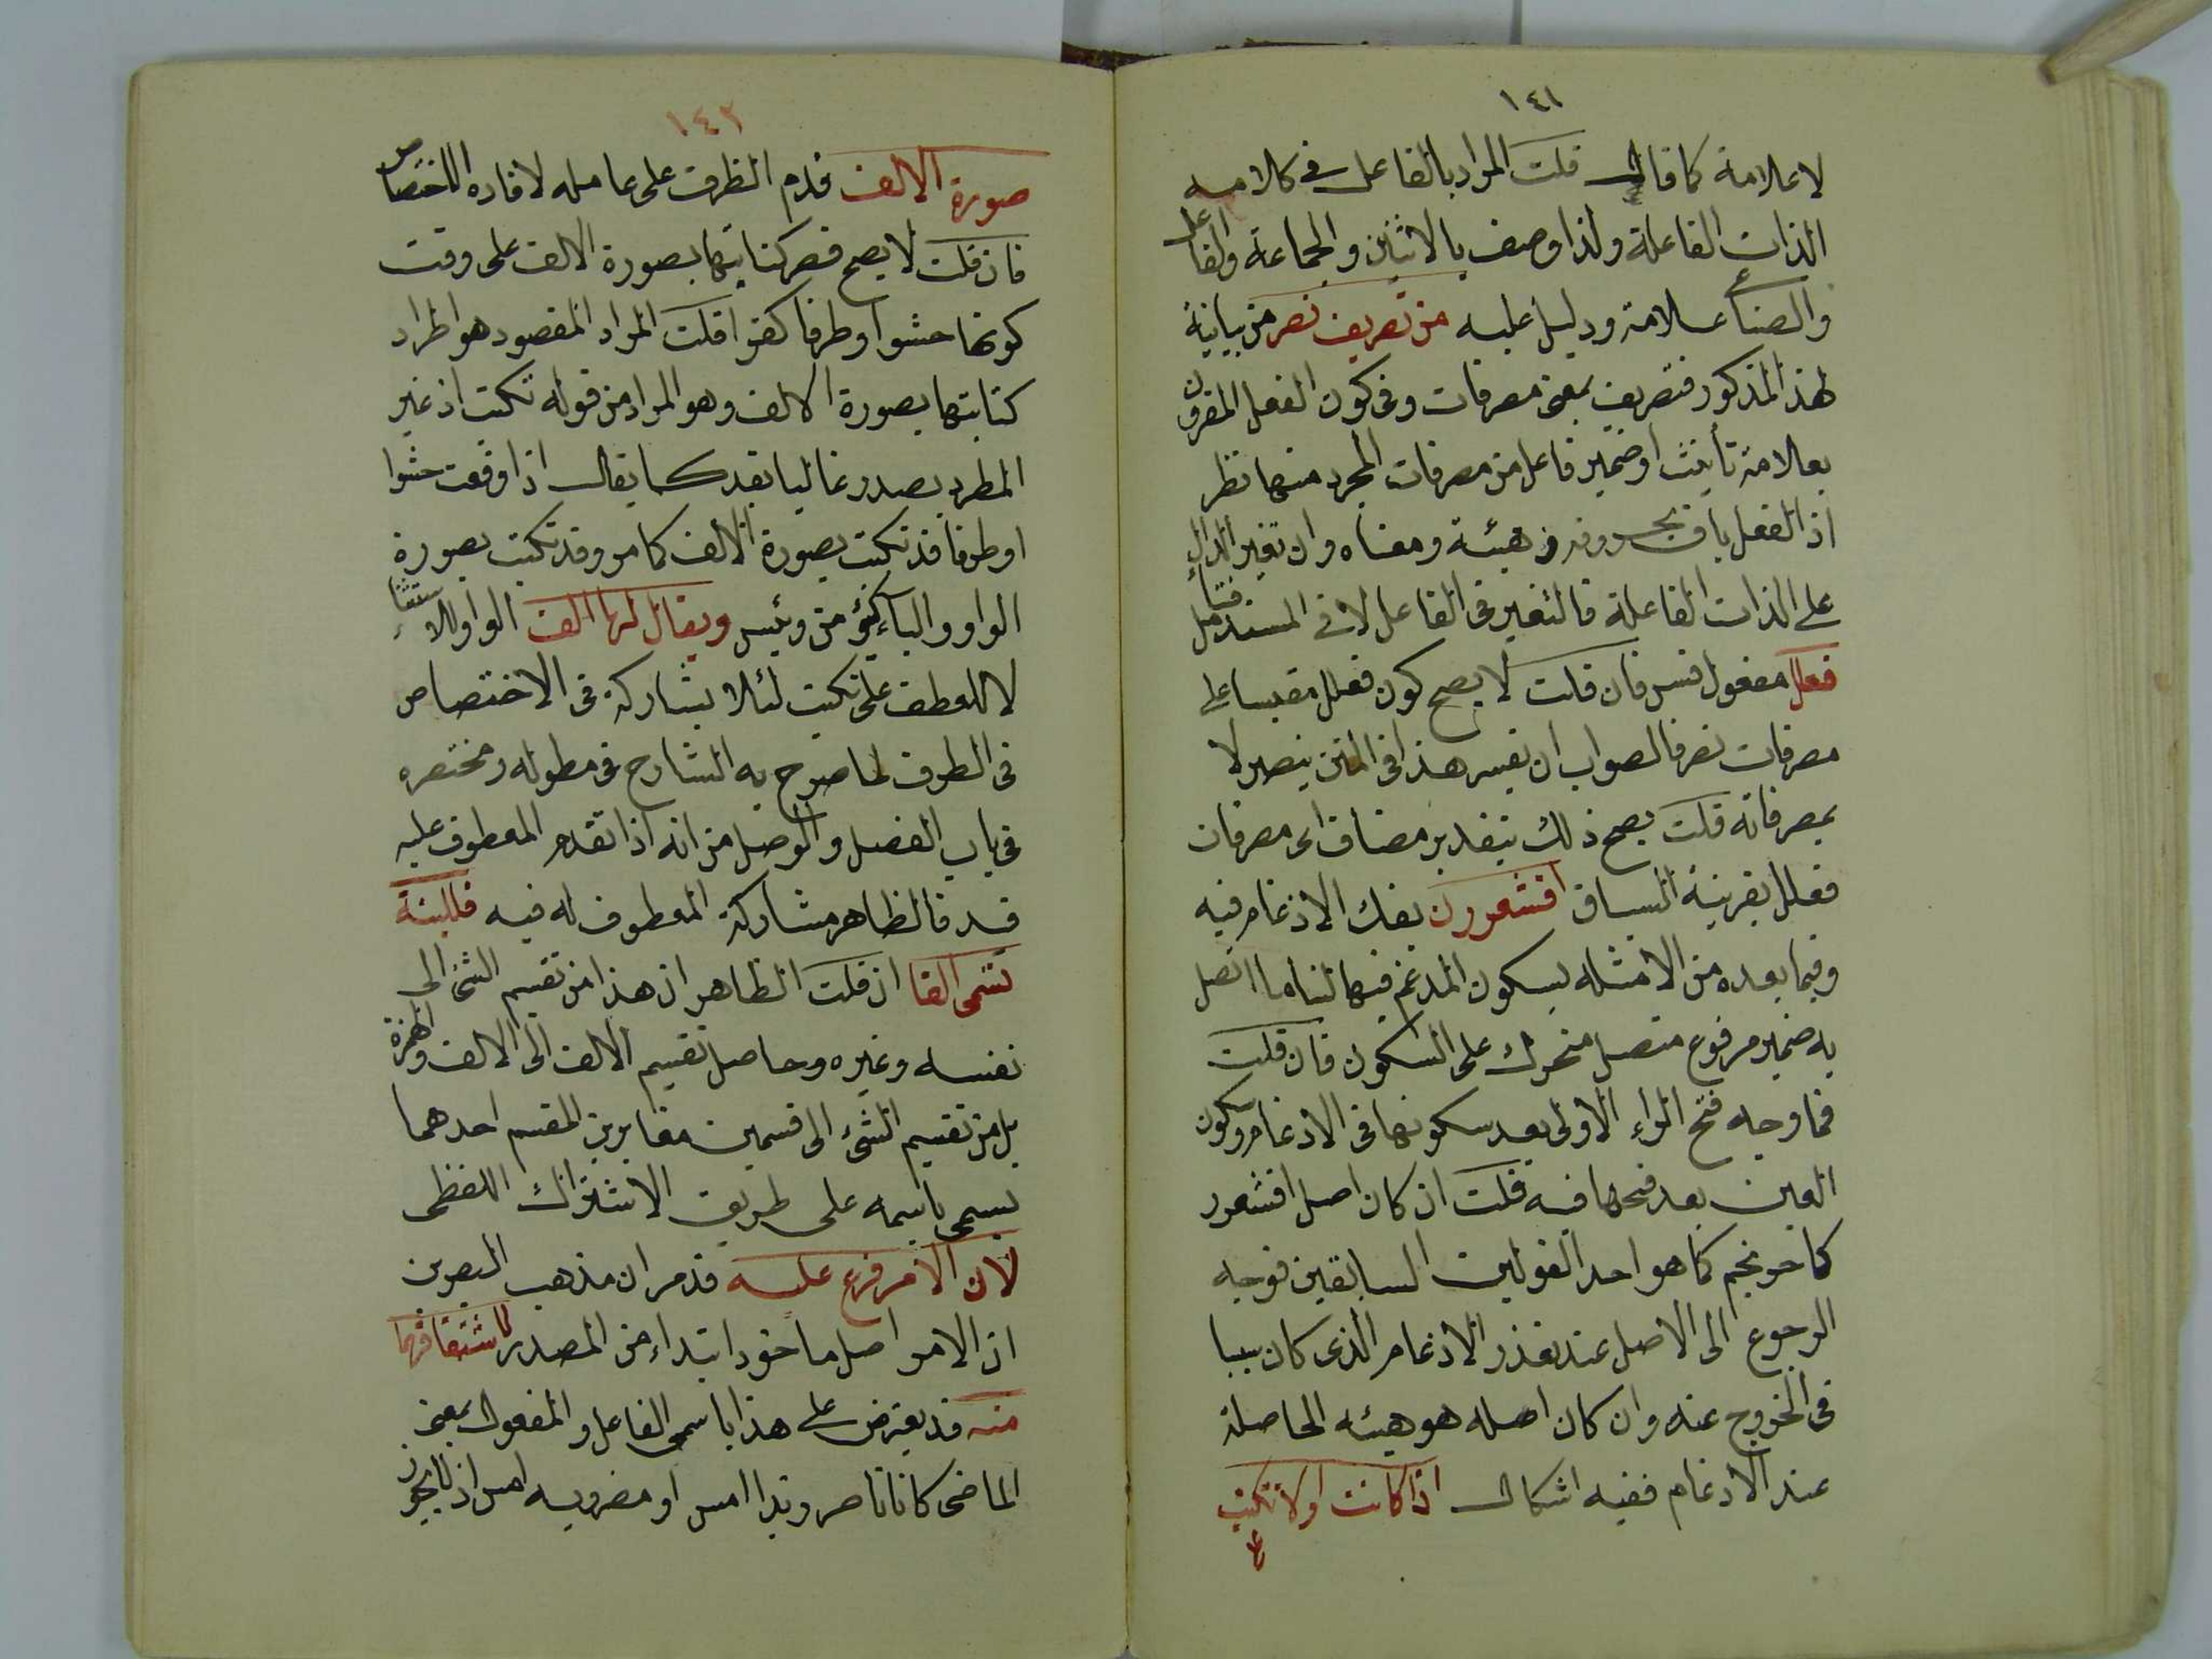 ١٤١
لا علامة كما قال قلت المراد بالفاعل في كلامه
الذات الفاعلة ولذا وصف بالاثنين والجماعة والفاعل
والصناعي علامة ودليل عليه من تصريف نصر من بيانية
لهذا المذكور فتصريف بمعنى مصرفات وفي كون الفعل المقرون
بعلامة تأنيث او ضمير فاعل من مصرفات المجرد منها نظر
اذ الفعل باق بحروفه وهيئة ومعناه وان تغير الدال
على الذات الفاعلة فالتغير في الفاعل لا في المسند فتأمل
فعلل مفعول قس فان قلت لا يصح كون فعلل مقيسا على
مصرفات نصر فالصواب ان يفسر هذا في المتن بنصر لا
بمصرفاته قلت يصح ذلك بتقدير مضاف اى مصرفات
فعلل بقرينة السباق اقشعررن بفك الادغام فيه
وفيما بعده من الامثلة لسكون المدغم فيها لبناء ما اتصل
به ضمير مرفوع متصل متحرك على السكون فان قلت
فما وجه فتح الراء الاولى بعد سكونها في الادغام وسكون
العين بعد فتحها فيه قلت ان كان اصل اقشعرر
كاحرنجم كما هو احد القولين السابقين فوجه
الرجوع الى الاصل عند تعذر الادغام الذى كان سببا
في الخروج عنه وان كان اصله هو هيئته الحاصلة
عند الادغام ففيه اشكال اذا كانت اولا تكتب
١٤٢
صورة الالف قدم الظرف على عامله لافادة الاختصاص
فان قلت لا يصح قصر كتابتها بصورة الالف على وقت
كونها حشوا او طرفا كقرا قلت المراد المقصود هو اطراد
كتابتها بصورة الالف وهو المراد من قوله تكتب اذ غير
المطرد يصدر غالبا بقد كما يقال اذا وقعت حشوا
او طرفا قد تكتب بصورة الالف كما مر وقد تكتب بصورة
الواو والياء كيؤمن وبئيس ويقال لها الف الواو للاستئناف
لا للعطف على تكتب لئلا يشاركه في الاختصاص
في الظرف لما صرح به الشارح في مطوله ومختصره
في باب الفصل والوصل من انه اذا تقدم المعطوف عليه
قيد فالظاهر مشاركة المعطوف له فيه فللينة
تسمى الفا ان قلت الظاهر ان هذا من تقسيم الشئ الى
نفسه وغيره وحاصل تقسيم الالف الى الالف والهمزة
بل من تقسيم الشئ الى قسمين مغايرين للمقسم احدهما
يسمى باسمه على طريق الاشتراك اللفظى
لان الامر فرع عليه قد مر ان مذهب البصريين
ان الامر اصل ماخوذ ابتداء من المصدر لاشتقاقهما
منه قد يعترض على هذا باسمى الفاعل والمفعول بمعنى
الماضى كانا ناصر زيدا امس او مضروبه امس اذ لا يجوز